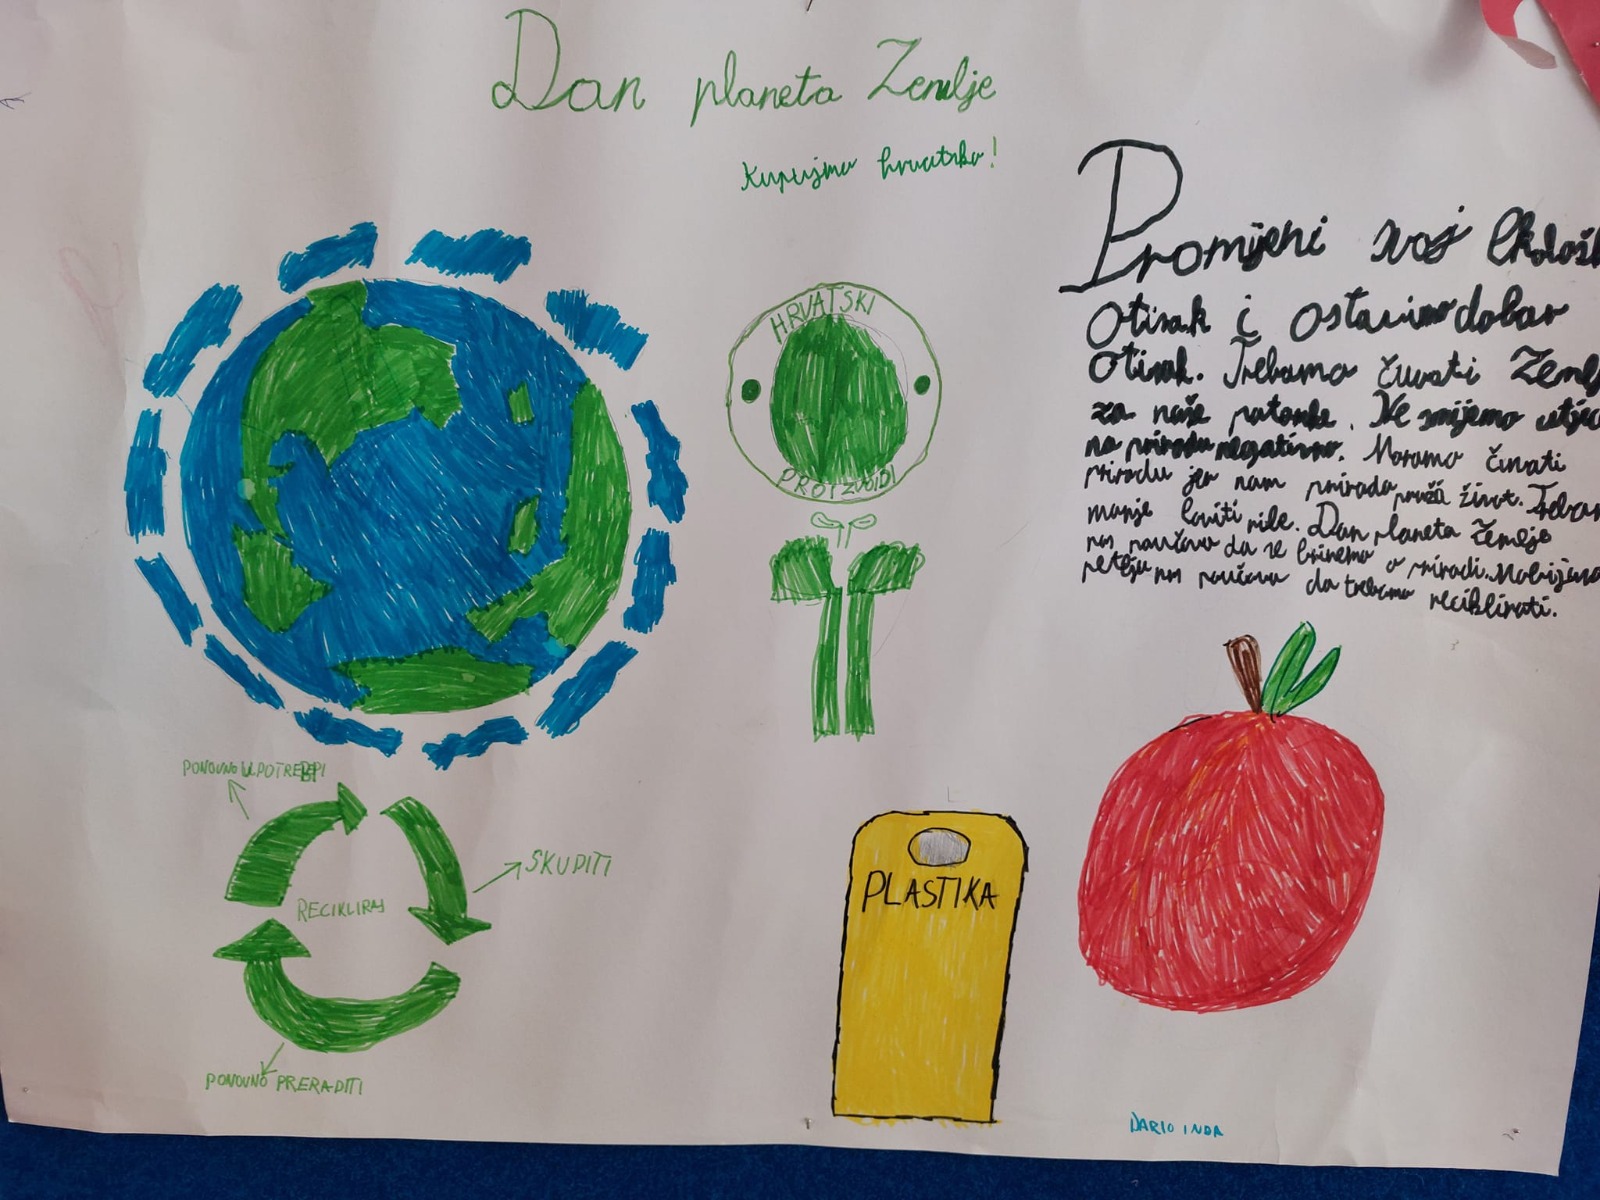 Dan planeta Zemlje
Kupujmo hrvatsko!
HRVATSKI
PROIZVODI
Promijeni svoj Ekološk
otisak i ostavimo dobar
otisak. Trebamo čuvati Zemlj
za naše potomke. Ne smijemo utjeca
na prirodu negativno. Moramo čuvati
prirodu jer nam priroda pruža život. Trebam
manje loviti ribe. Dan planeta Zemlje
nas poučava da se brinemo o prirodi. Mobijusova
petlja nas poučava da trebamo reciklirati.
PONOVNO UPOTREBI
SKUPITI
RECIKLIRAJ
PONOVNO PRERADITI
PLASTIKA
DARIO INĐA